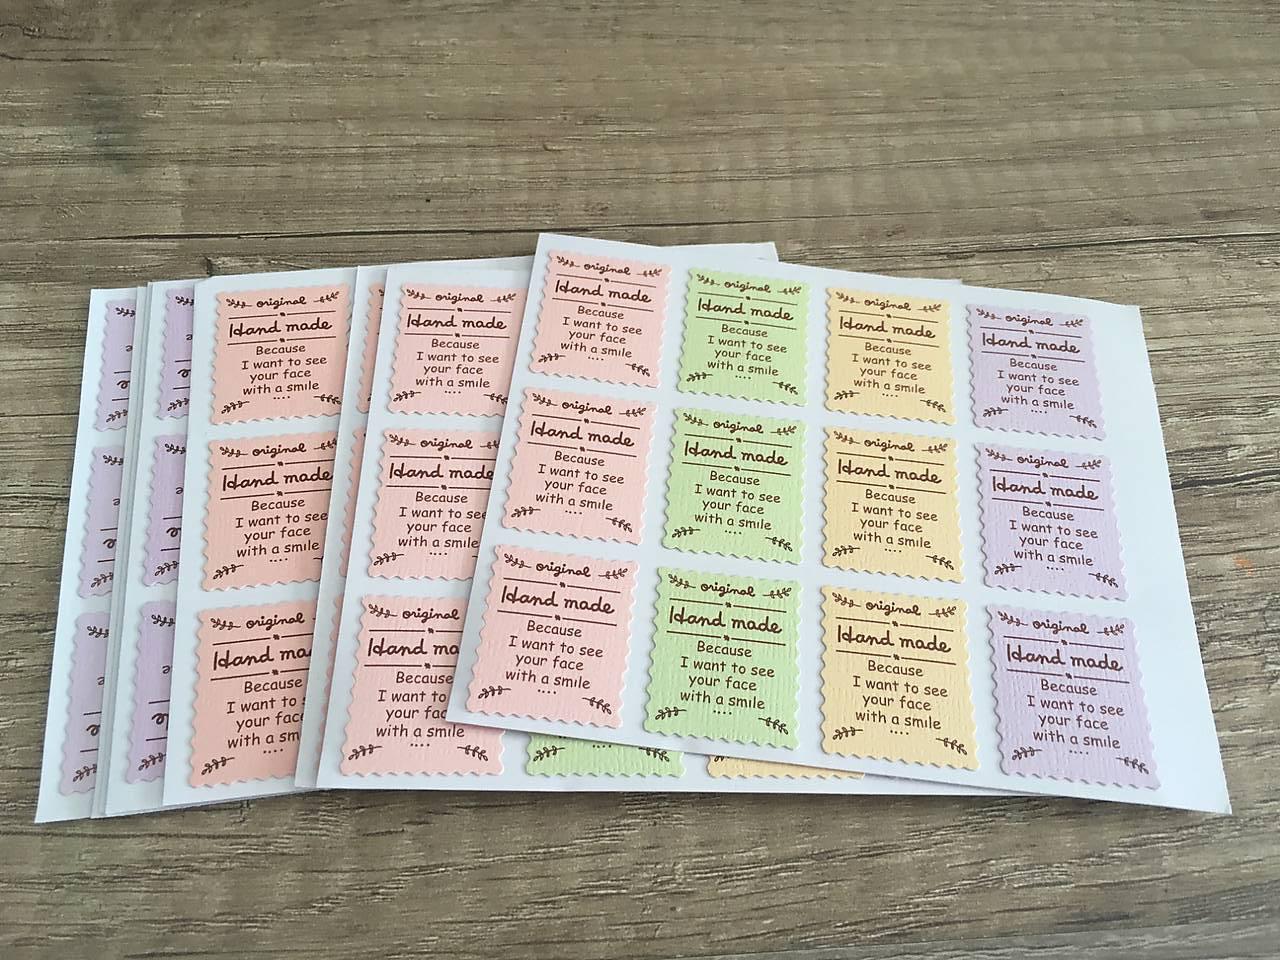 original
Hand made
Because
I want to see
your face
with a smile
....
original
Hand made
Because
I want to see
your face
with a smile
....
original
Hand
Because
I want to
your
with a
....
original
Hand made
Because
I want to see
your face
with a smile
....
original
Hand made
Because
I want to see
your face
with a smile
....
original
Hand
I want to
your
with a
....
original
Hand made
Because
I want to see
your face
with a smile
....
original
Hand made
Because
I want to see
your face
with a smile
....
original
Hand made
Because
I want to see
your face
with a smile
....
original
Hand made
Because
I want to see
your face
with a smile
....
original
Hand made
Because
I want to see
your face
with a smile
....
original
Hand made
Because
I want to see
your face
with a smile
....
original
Hand made
Because
I want to see
your face
with a smile
....
original
Hand made
Because
I want to see
your face
with a smile
....
original
Hand made
Because
I want to see
your face
with a smile
....
original
Hand made
Because
I want to see
your face
with a smile
....
original
Hand made
Because
I want to see
your face
with a smile
....
original
Hand made
Because
I want to see
your face
with a smile
....